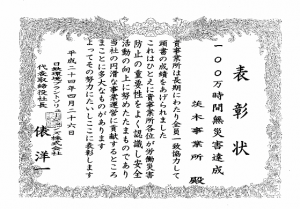 表彰状
一〇〇万時間無災害達成
茨木事業所 殿
貴事業所は長期にわたり全員一致協力して
頭書の成績をあげられました
これはひとえに貴事業所各位が労働災害
防止の重要性をよく認識し安全
活動の向上に努めたたまものであり
当社の円滑な事業運営に貢献するところ
まことに多大なものがあります
よってその努力にたいしここに表彰します
平成二十四年四月二十六日
代表取締役社長 俵 洋一